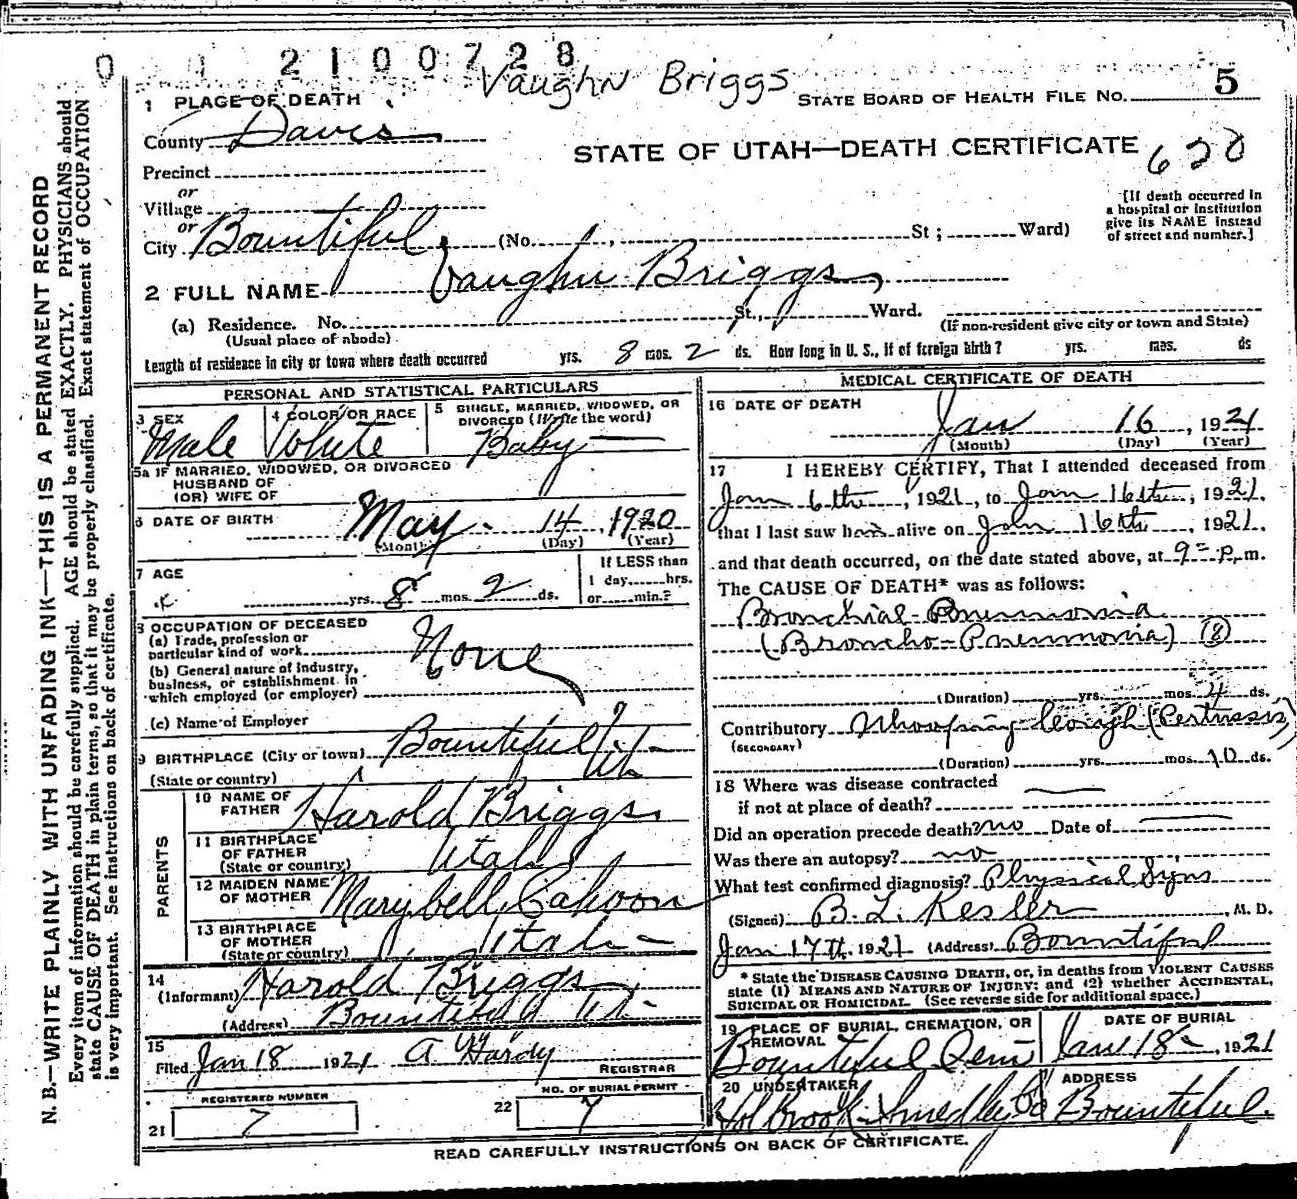 0 2100728
Vaughn Briggs
STATE BOARD OF HEALTH FILE NO. 5
1 PLACE OF DEATH
County Davis
STATE OF UTAH—DEATH CERTIFICATE
Precinct
or
Village
or
City Bountiful (No. St; Ward)
[If death occurred in
a hospital or institution
give its NAME instead
of street and number.]
2 FULL NAME Vaughn Briggs,
(a) Residence. No. St., Ward.
(Usual place of abode) (If non-resident give city or town and State)
Length of residence in city or town where death occurred yrs. 8 mos. 2 ds. How long in U. S., if of foreign birth? yrs. mos. ds
PERSONAL AND STATISTICAL PARTICULARS
3 SEX
Male
4 COLOR OR RACE
White
5 SINGLE, MARRIED, WIDOWED, OR
DIVORCED (Write the word)
Baby
5a IF MARRIED, WIDOWED, OR DIVORCED
HUSBAND OF
(OR) WIFE OF
6 DATE OF BIRTH May 14, 1920
(Month) (Day) (Year)
7 AGE
yrs. 8 mos. 2 ds.
If LESS than
1 day hrs.
or min.?
8 OCCUPATION OF DECEASED
(a) Trade, profession or
particular kind of work
None
(b) General nature of industry,
business, or establishment in
which employed (or employer)
(c) Name of Employer
9 BIRTHPLACE (City or town) Bountiful
(State or country) Ut
PARENTS
10 NAME OF
FATHER Harold Briggs.
11 BIRTHPLACE
OF FATHER
(State or country) Utah
12 MAIDEN NAME
OF MOTHER Marybell Cahoon
13 BIRTHPLACE
OF MOTHER
(State or country) Utah
14
(Informant) Harold Briggs
(Address) Bountiful Ut.
15
Filed Jan 18 1921 Hardy
REGISTRAR
REGISTERED NUMBER
21 7
NO. OF BURIAL PERMIT
22 7
MEDICAL CERTIFICATE OF DEATH
16 DATE OF DEATH
Jan 16, 1921
(Month) (Day) (Year)
17 I HEREBY CERTIFY, That I attended deceased from
Jan 6th, 1921, to Jan 16th, 1921.
that I last saw alive on Jan 16th, 1921.
and that death occurred, on the date stated above, at 9 p. m.
The CAUSE OF DEATH* was as follows:
Bronchial-Pneumonia
(Broncho-Pneumonia) (8)
(Duration) yrs. mos. 4 ds.
Contributory Whooping Cough (Pertussis)
(SECONDARY)
(Duration) yrs. mos. 10 ds.
18 Where was disease contracted
if not at place of death?
Did an operation precede death? no Date of
Was there an autopsy? no
What test confirmed diagnosis? Physical Signs
(Signed) B. L. Kesler, M. D.
Jan 17th 1921 (Address) Bountiful
* State the DISEASE CAUSING DEATH, or, in deaths from VIOLENT CAUSES
state (1) MEANS AND NATURE OF INJURY; and (2) whether ACCIDENTAL,
SUICIDAL OR HOMICIDAL. (See reverse side for additional space.)
19 PLACE OF BURIAL, CREMATION, OR
REMOVAL
Bountiful Cem
DATE OF BURIAL
Jan 18, 1921
20 UNDERTAKER
Holbrook Smedley Co
ADDRESS
Bountiful.
READ CAREFULLY INSTRUCTIONS ON BACK OF CERTIFICATE.
N. B.—WRITE PLAINLY WITH UNFADING INK—THIS IS A PERMANENT RECORD
Every item of information should be carefully supplied. AGE should be stated EXACTLY. PHYSICIANS should
state CAUSE OF DEATH in plain terms, so that it may be properly classified. Exact statement of OCCUPATION
is very important. See instructions on back of certificate.